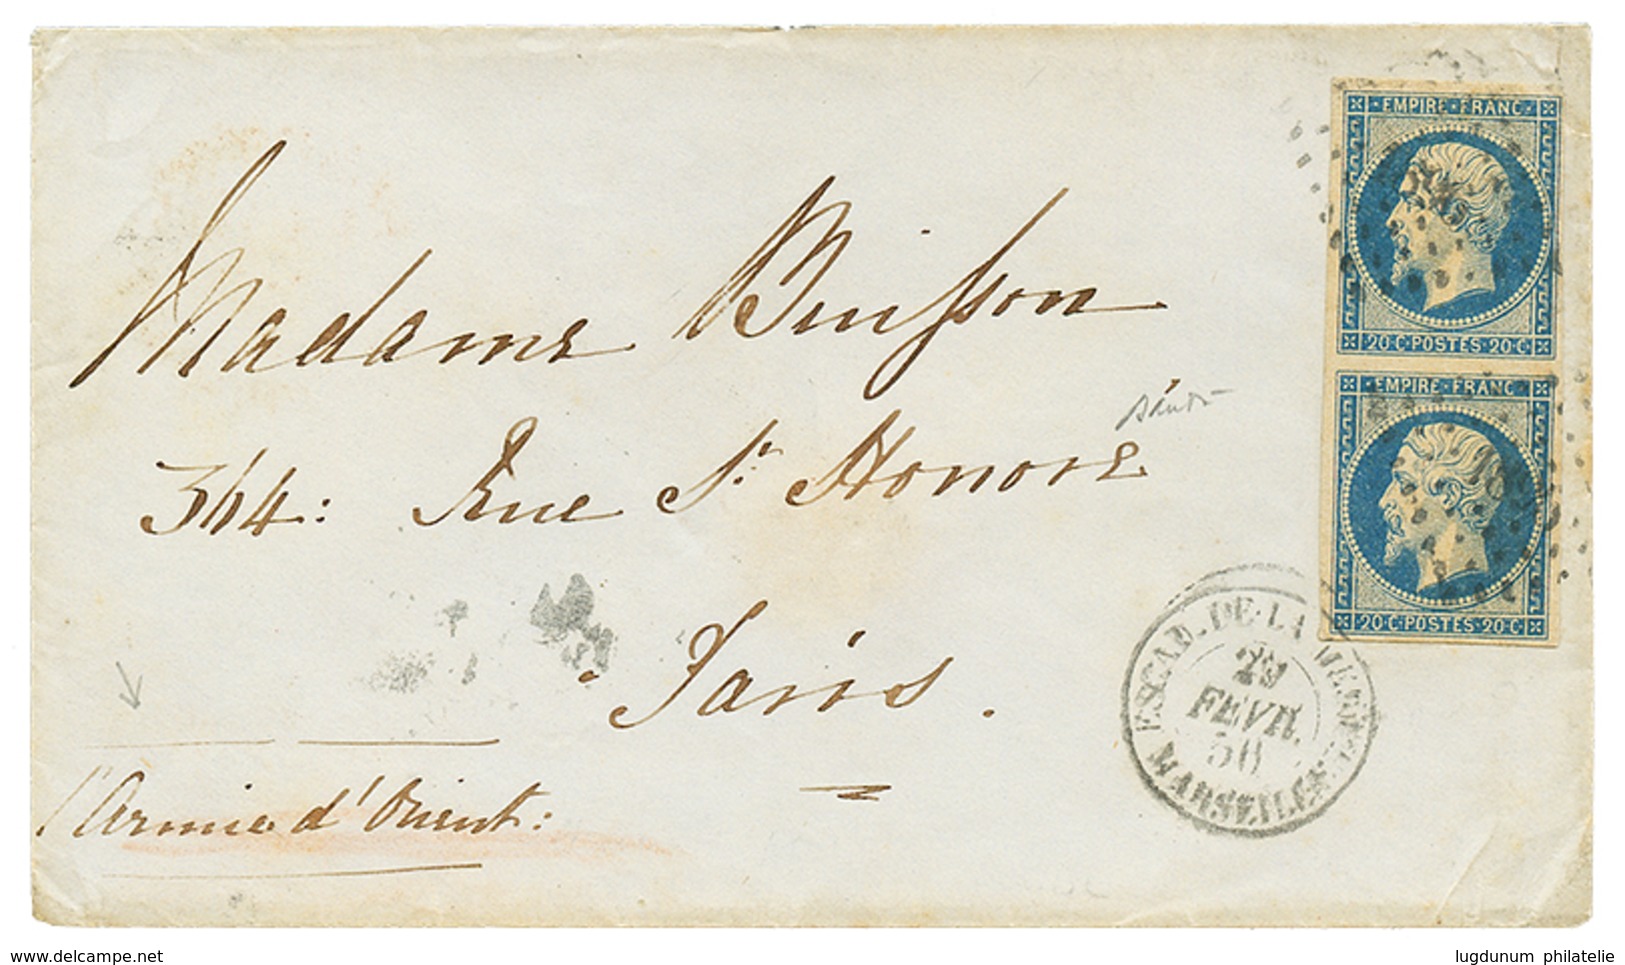 EMPIRE·FRANC·
20·C·POSTES·20·C
EMPIRE·FRANC·
20·C·POSTES·20·C
Madame Buisson
344: Rue St. Honoré
Paris.
l'Armée d'Orient:
ESCAD. DE LA
29
FEVR.
56
MARSEILLE
www.delcampe.net
lugdunum philatelie